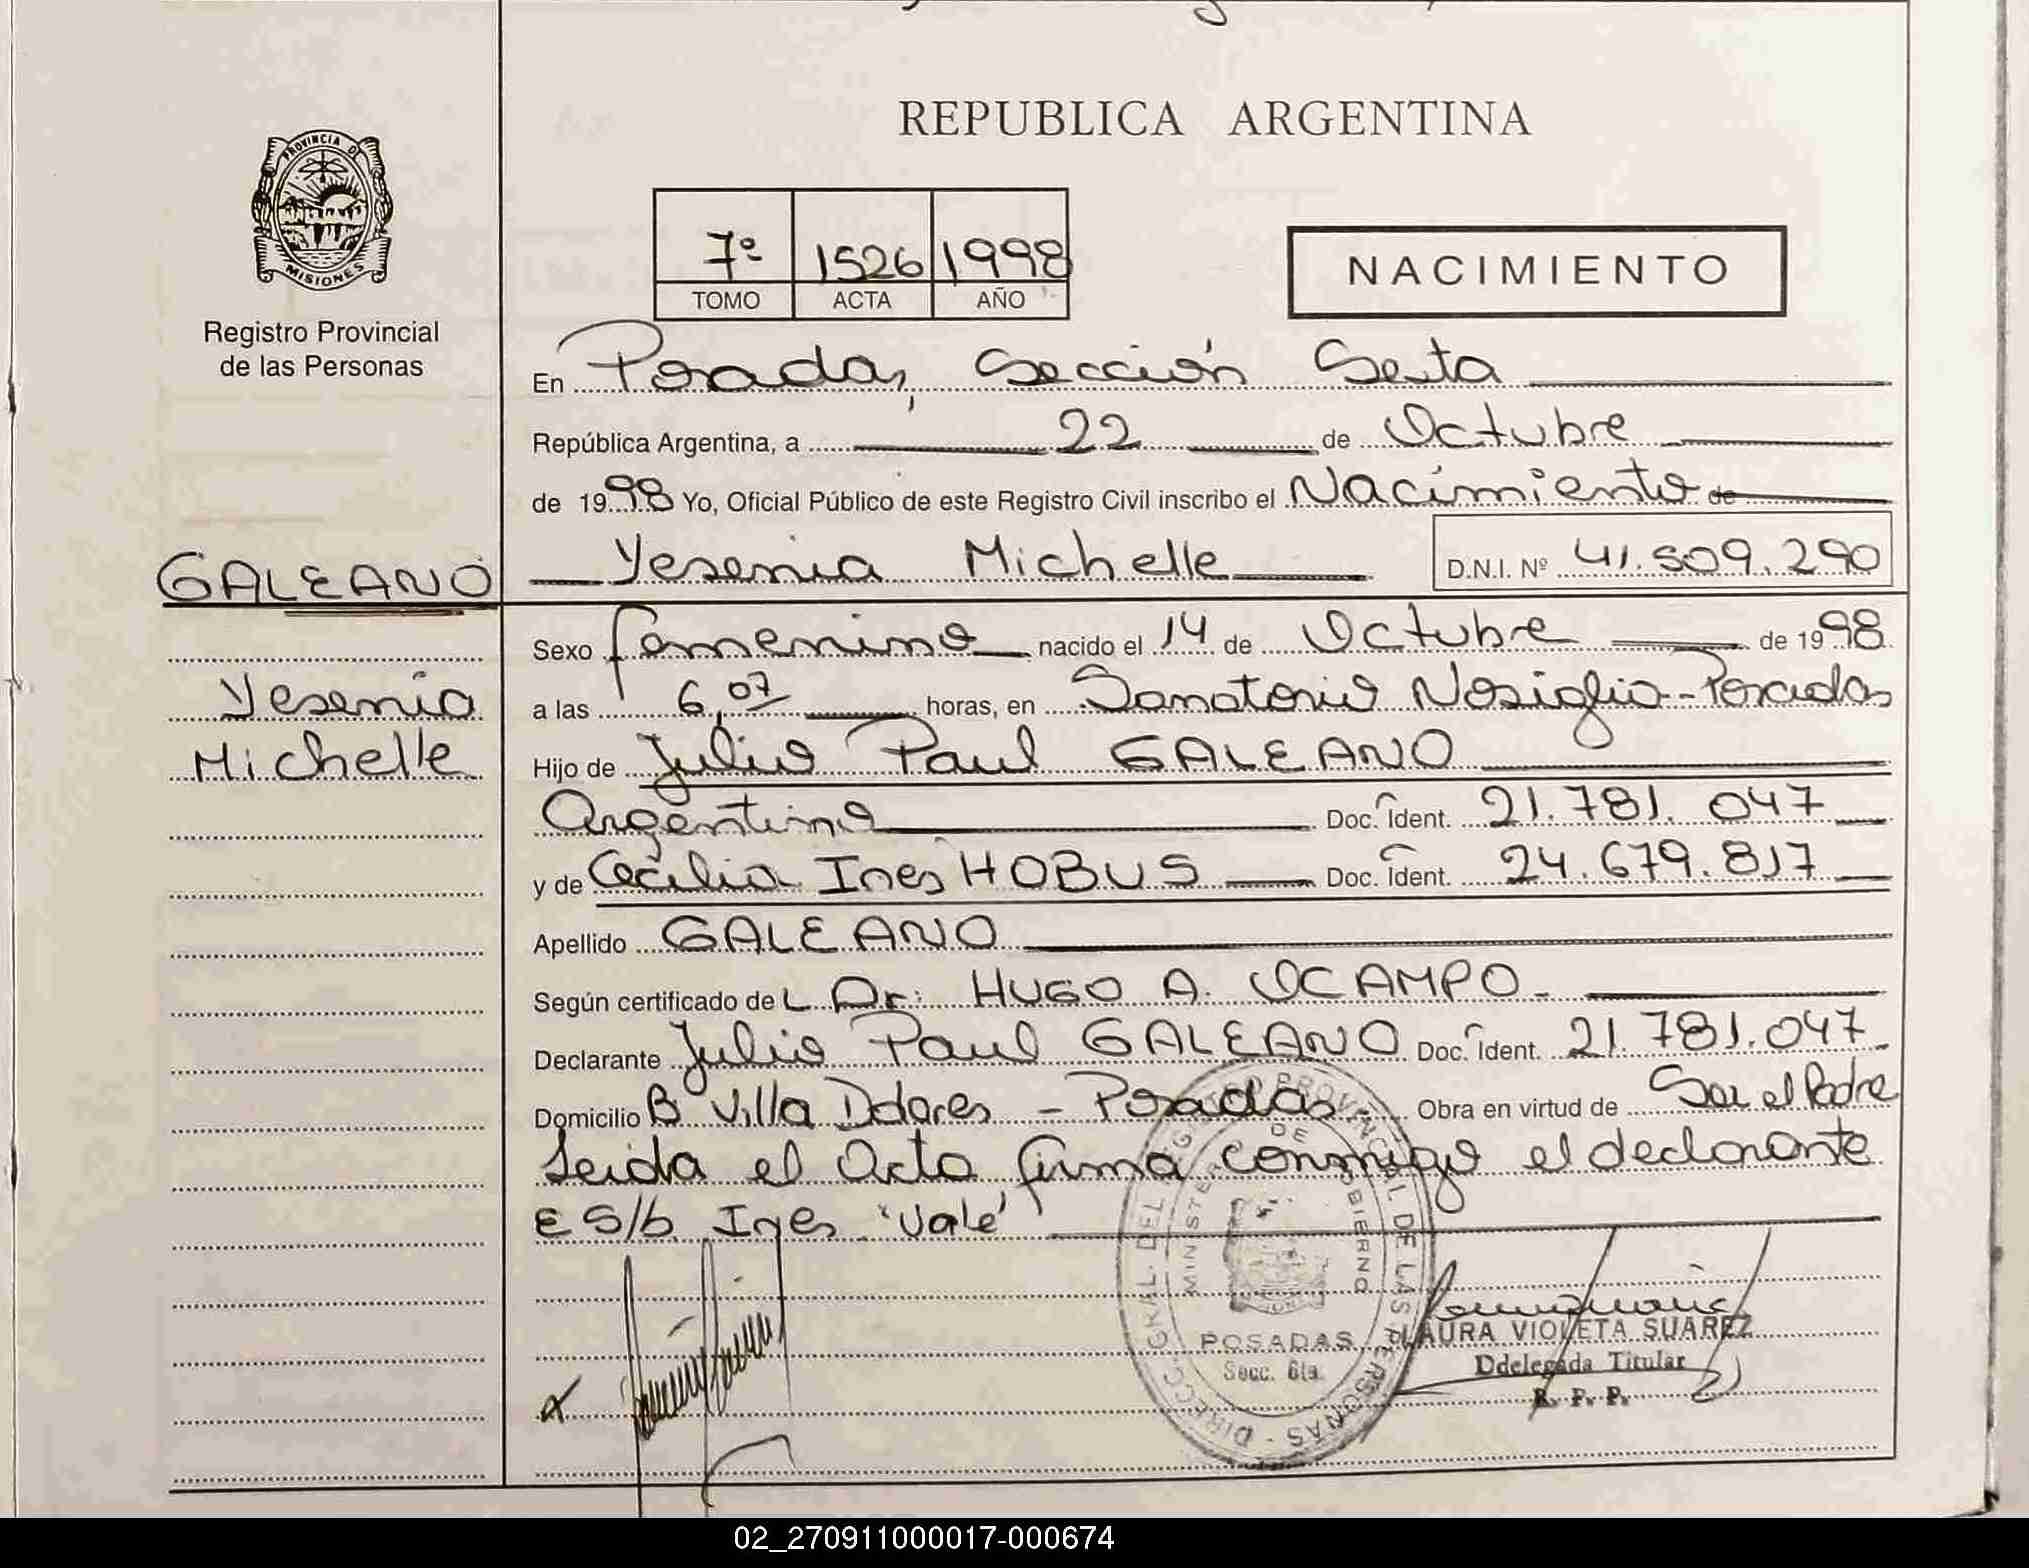 REPUBLICA ARGENTINA
PROVINCIA DE
MISIONES
Registro Provincial
de las Personas
7º 1526 1998
TOMO ACTA AÑO
NACIMIENTO
En Posadas, Sección Sexta
República Argentina, a 22 de Octubre
de 1998 Yo, Oficial Público de este Registro Civil inscribo el Nacimiento de
GALEANO
Yesenia Michelle D.N.I. Nº 41.509.290
Sexo femenino nacido el 14 de Octubre de 1998
Yesenia
Michelle
a las 6,07 horas, en Sanatorio Nosiglia - Posadas
Hijo de Julio Paul GALEANO
Argentino Doc. Ident. 21.781.047
y de Cecilia Ines HOBUS Doc. Ident. 24.679.817
Apellido GALEANO
Según certificado del Dr: HUGO A. OCAMPO
Declarante Julio Paul GALEANO Doc. Ident. 21.781.047
Domicilio Bº Villa Dolores - Posadas - Obra en virtud de Ser el Padre
Leida el Acta, firma conmigo el declarante
E S/b Ines "Vale"
DIRECC. GRAL. DEL REGISTRO PROVINCIAL DE LAS PERSONAS
MINISTERIO DE GOBIERNO
POSADAS
Secc. 6ta.
LAURA VIOLETA SUAREZ
Ddelegada Titular
R. P. P.
02_270911000017-000674